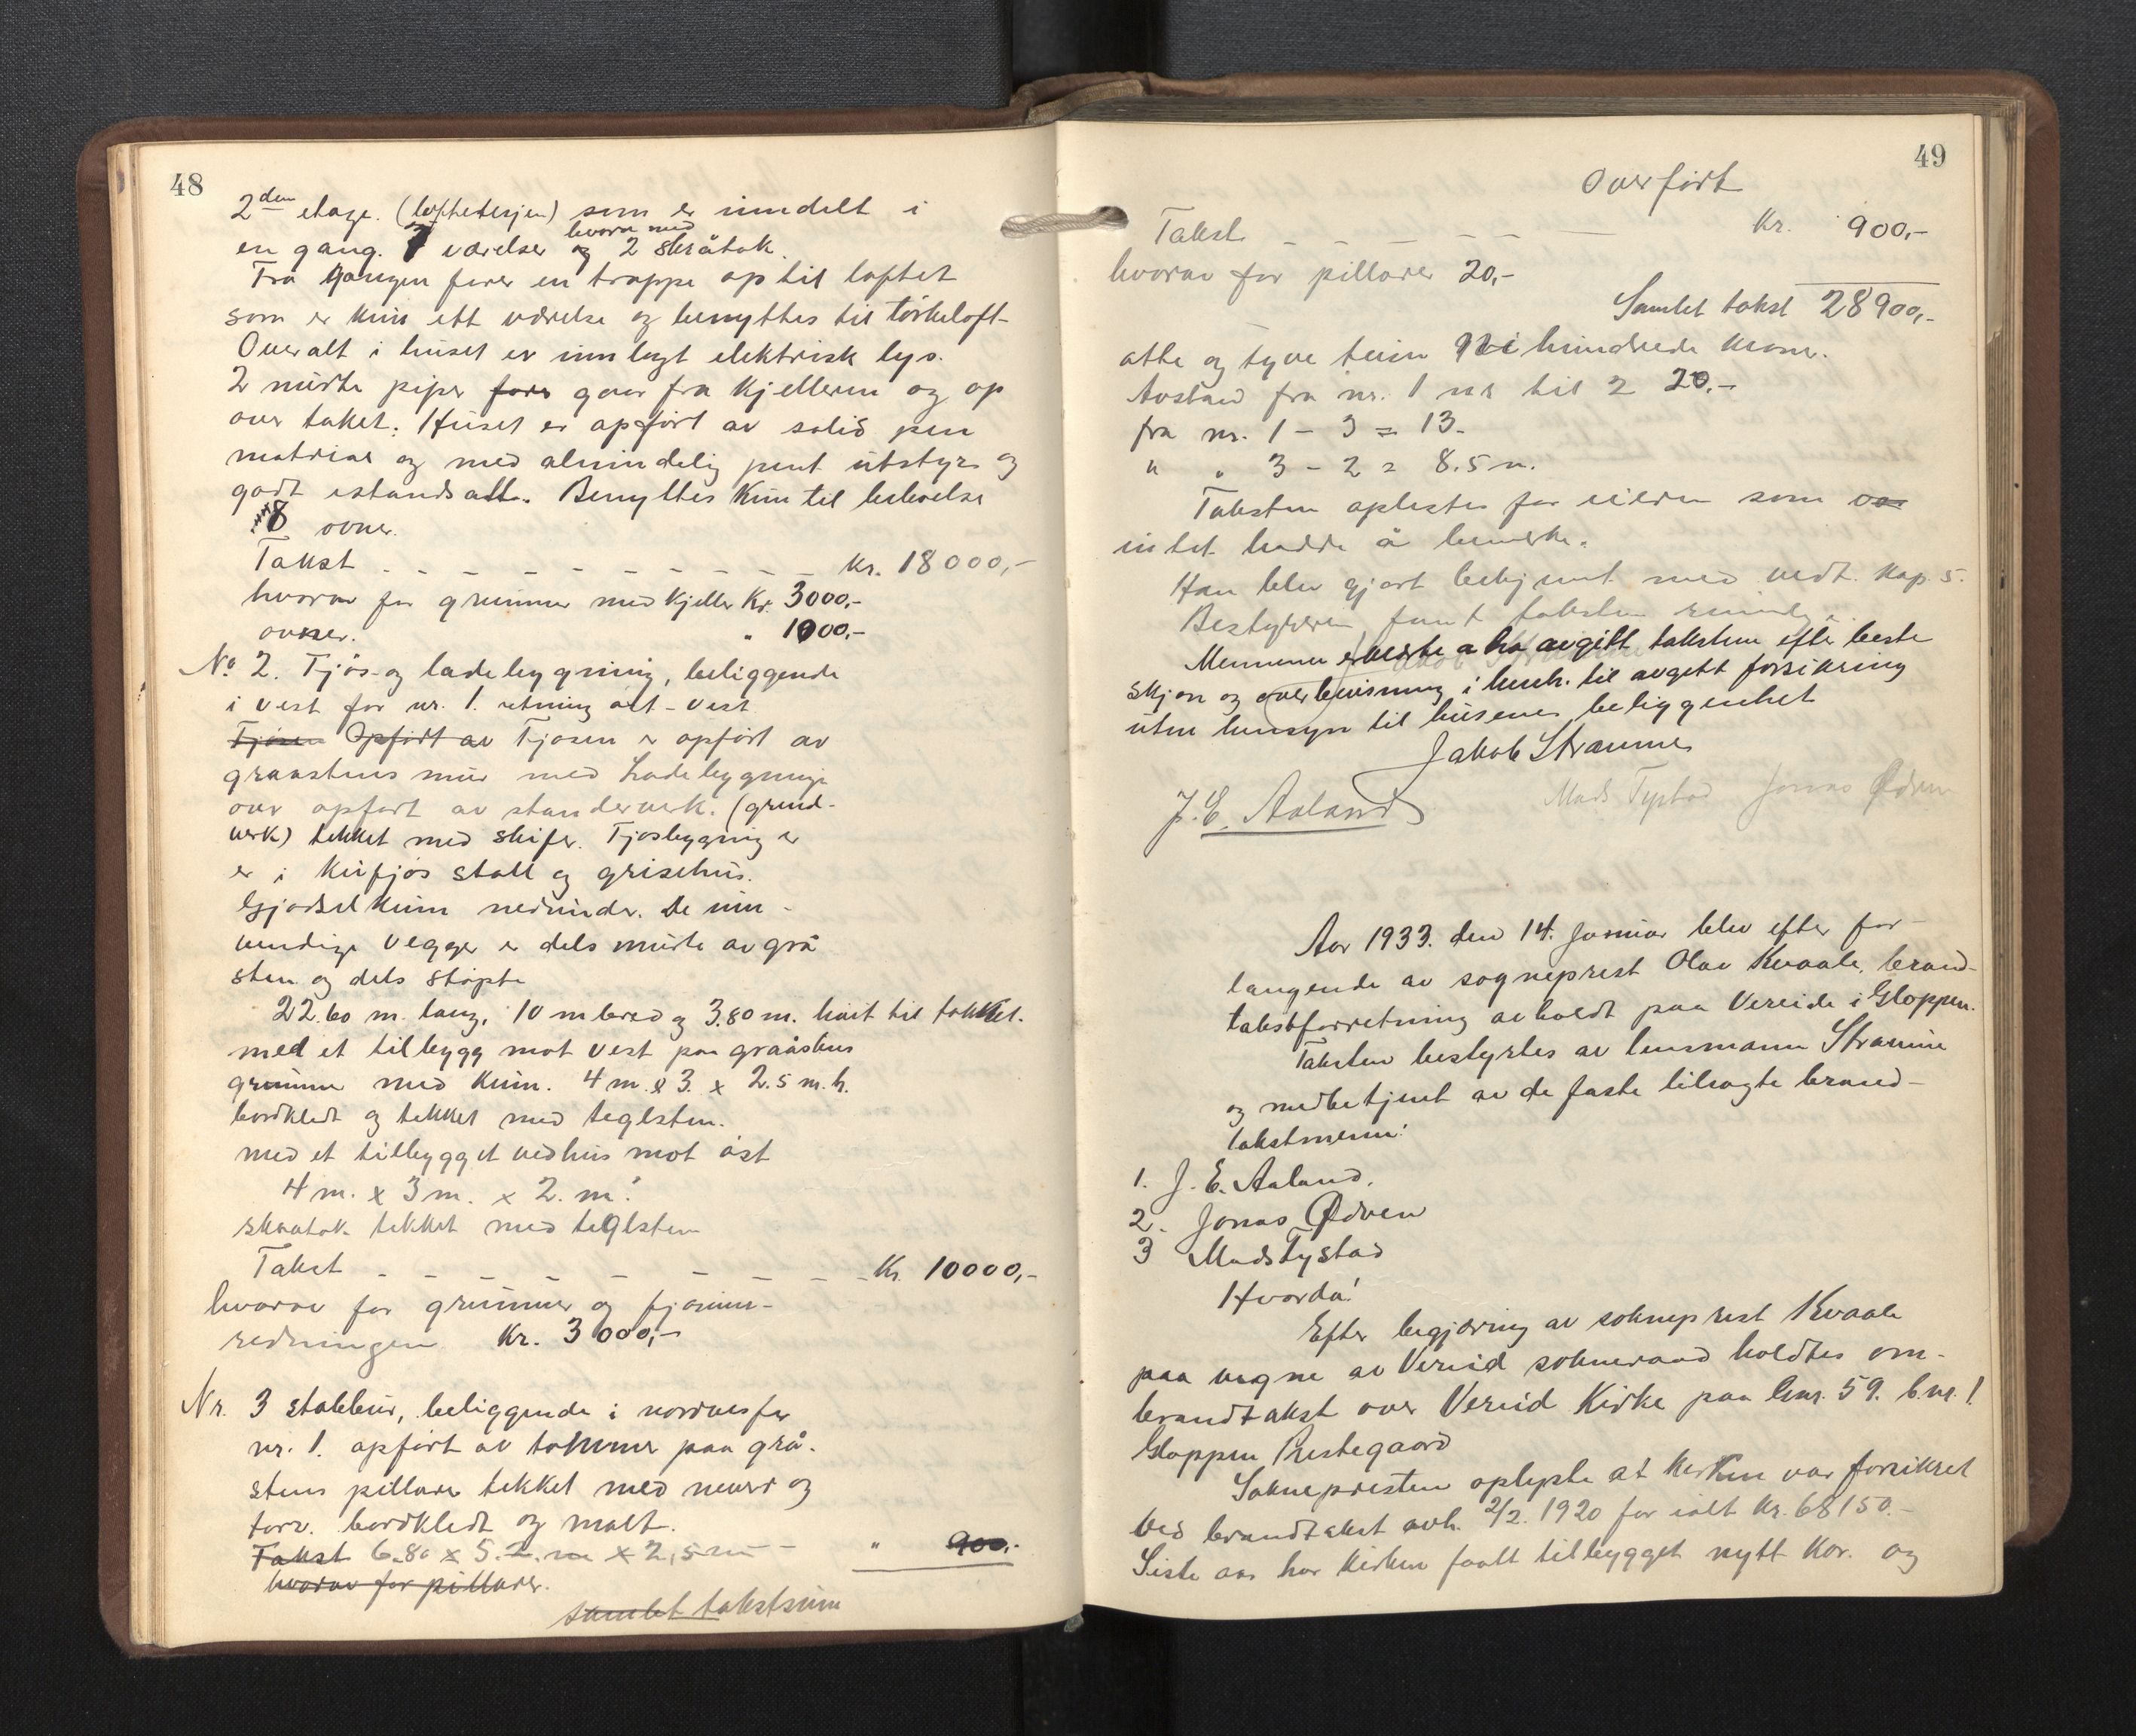 48
2den etage. (loftetesjen) som er inndelt i
hvorav med
en gang. 7 værelser og 2 skråtak.
Fra gangen fører en trappe op til loftet
som er kun ett værelse og benyttes til törkeloft-
Overalt i huset er innlagt elektrisk lys.
2 murte piper fører gaar fra kjelleren og op
over taket. Huset er opført av solid pen
matrial og med almindelig pent utstyr og
godt istandsatt. Benyttes kun til beboelse
8 ovner.
Takst - - - - - - - - - - kr. 18000,-
hvorav for grunnmur med kjeller Kr. 3000,-
ovner. " 1000,-
No 2. Fjös- og ladebygning, beliggende
i vest for nr. 1. retning öst - vest
Fjösen Opfört av Fjosen er opfört av
graastens mur med Ladebygninge
over opført av standerverk. (grind-
verk) tekket med skifer. Fjosbygning er
er i Kufjös stall og grisehus.
Gjødselkum nedunder. De inn-
vendige vegger er dels murte av grå
sten og dels stöpte
22.60 m. lang, 10 m bred og 3.80 m. höit til takket.
med et tilbygg mot vest paa graastens
grunnmur med kum. 4 m. x 3. x 2.5 m. h.
bordkledt og tekket med teglsten.
med et tilbygget vedhus mot öst
4 m. x 3 m. x 2. m.
skraatak tekket med teglsten
Takst - - - - - - - - - - Kr. 10000,-
hvorav for grunnmur og fjösinn-
redningen Kr. 3000,-
Nr. 3 stabbur, beliggende i nordvest for
nr. 1. opfört av tømmer paa grå-
stens pillarer tekket med never og
torv. bordkledt og malt.
Takst 6.80 x 5.2. m x 2,5 m - " 900,-
hvorav for pillarer.
samlet takstsum
49
Overfört
Takst - - - - - - - Kr. 900,-
hvorav for pillarer 20,-
Samlet takst 28900,-
otte og tyve tusen Ni hundrede kroner.
Avstand fra nr. 1 nr til 2 20.-
fra nr. 1 - 3 = 13.
" " 3 - 2 = 8.5 m.
Taksten oplestes for eieren som var
intet hadde å bemerke.
Han blev gjort bekjent med vedt. kap 5.
Bestyreren fant taksten rimelig.
Mennene erklærte a ha avgitt taksten efter beste
skjøn og overbevisning i henh. til avgitt forsikring
uten hensyn til husenes beliggenhet
Jakob Straume
J. E. Aaland Mads Tystad Jonas Ødven
Aar 1933. den 14. Januar blev efter for-
langende av sogneprest Olav Kvaale, brand-
takstforretning avholdt paa Vereide i Gloppen.
Taksten bestyrtes av lensmann Straume
og medbetjent av de faste tilsagte brand-
takstmenn:
1. J. E. Aaland.
2. Jonas Ødven
3 Mads Tystad
Hvorda!
Efter begjæring av sokneprest Kvaale
paa vegne av Vereid sokneraad holdtes om-
brandtakst over Vereid Kirke paa Gnr. 59. bnr. 1
Gloppen Prestegaard
Soknepresten oplyste at kirken var forsikret
ved brandtakst avh. 2/2. 1920 for ialt kr. 68150.-
Siste aar har kirken faatt tilbygget nytt Kor. og